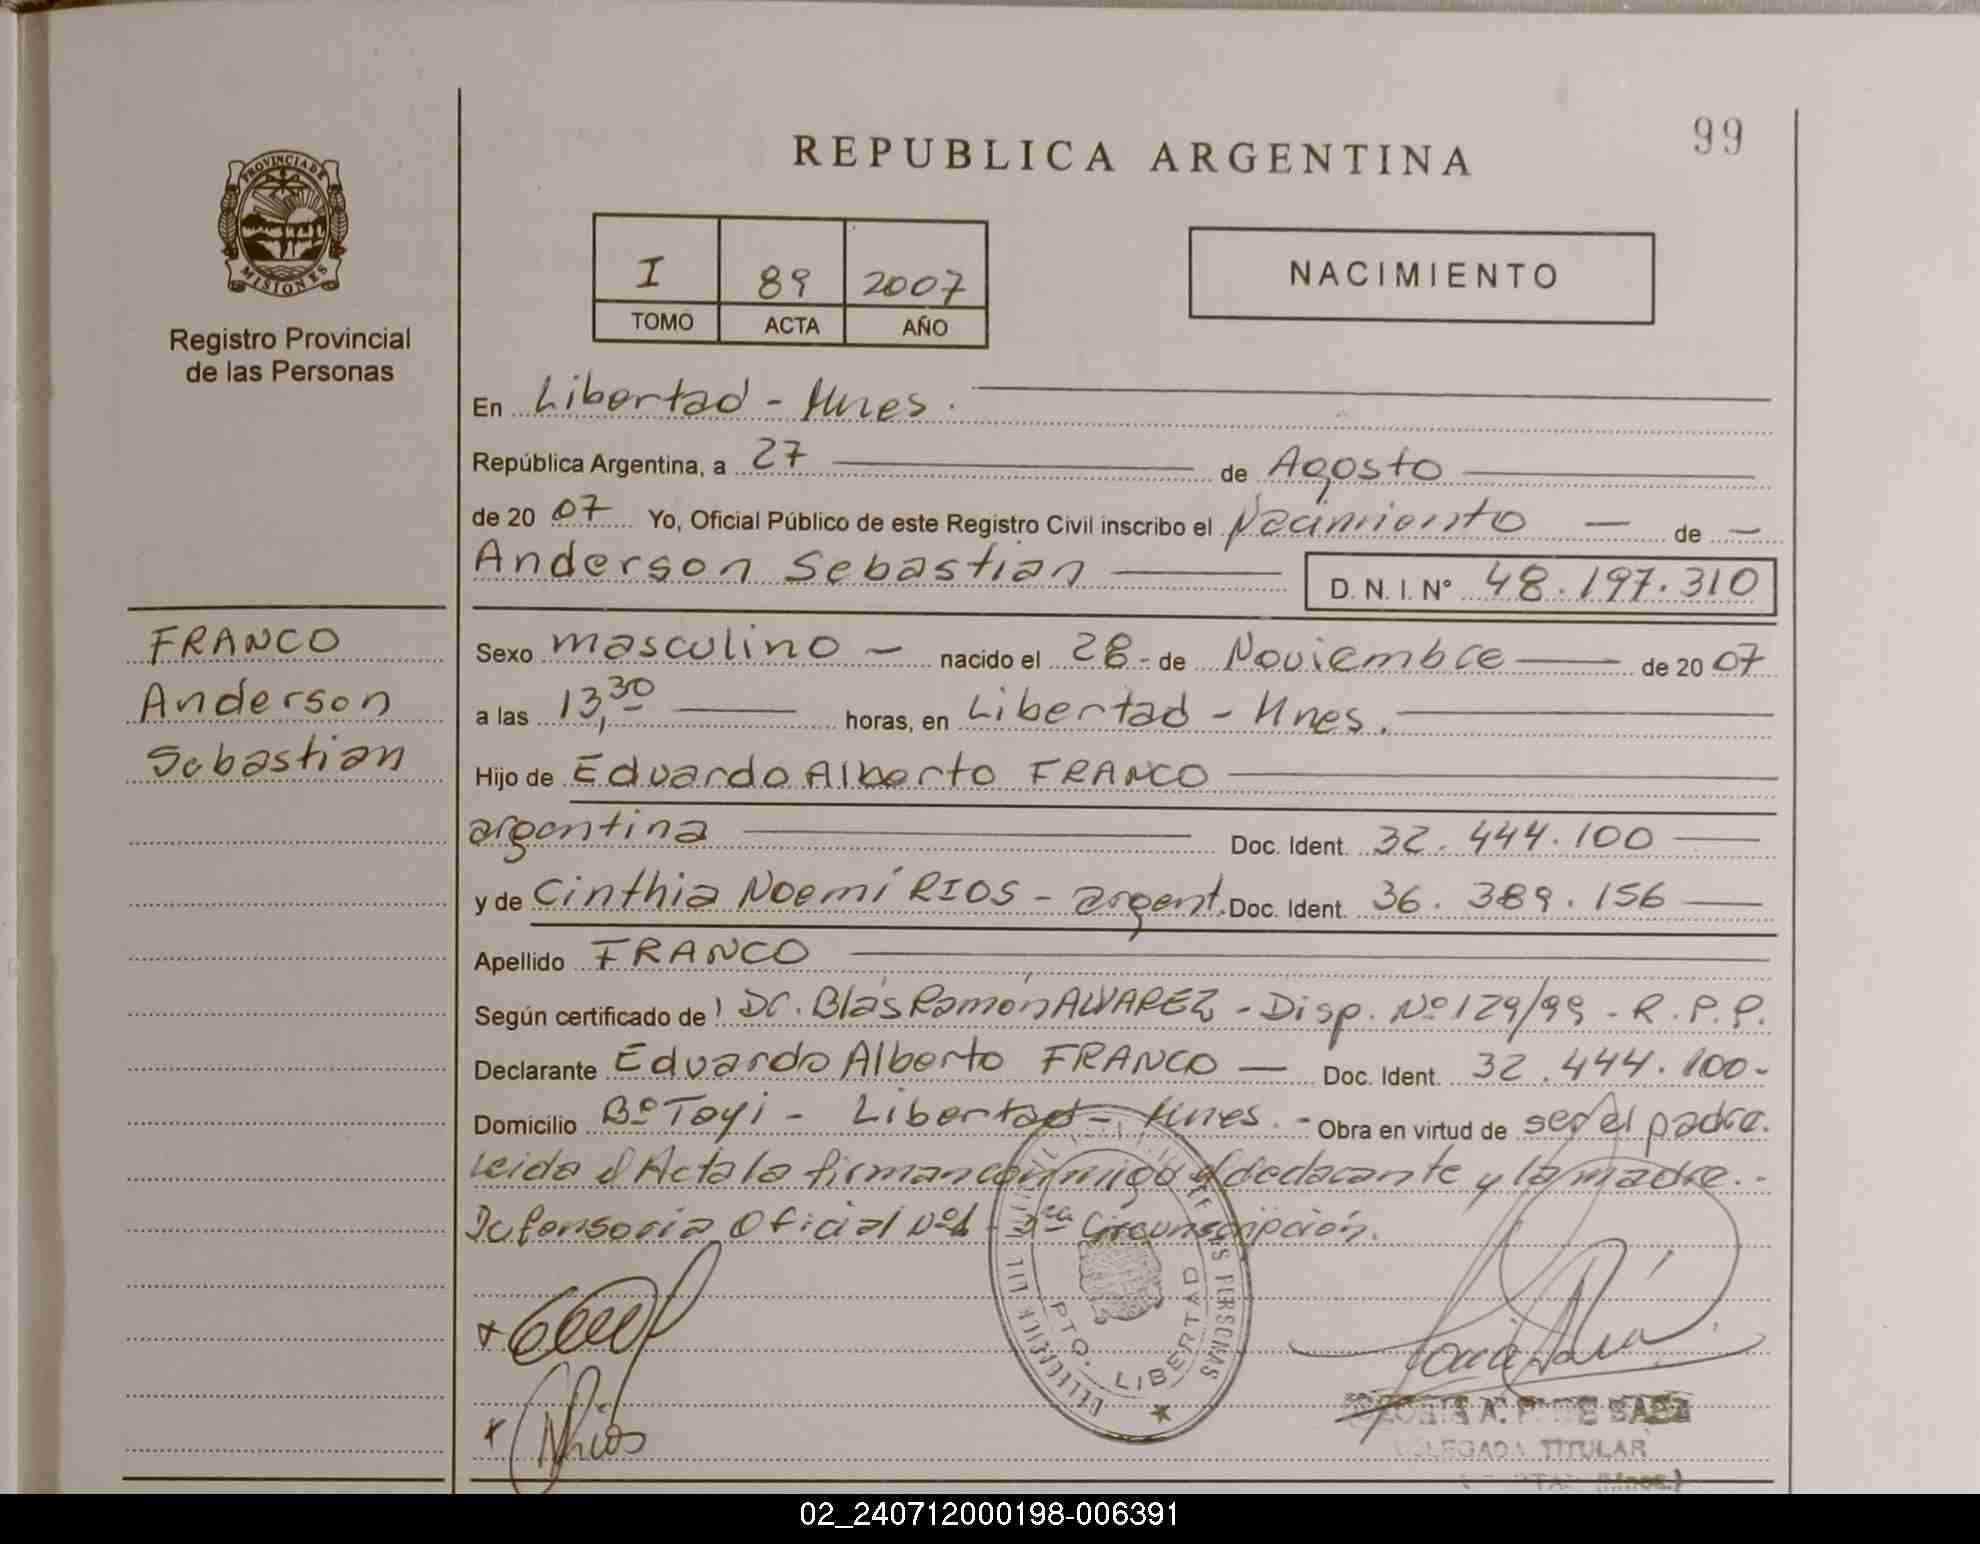 99
REPUBLICA ARGENTINA
PROVINCIA DE
MISIONES
Registro Provincial
de las Personas
I 89 2007
TOMO ACTA AÑO
NACIMIENTO
En Libertad - Mnes.
República Argentina, a 27 de Agosto
de 20 07 Yo, Oficial Público de este Registro Civil inscribo el Nacimiento — de —
Anderson Sebastian
D. N. I. N° 48.197.310
FRANCO
Anderson
Sebastian
Sexo masculino — nacido el 28 - de Noviembre de 20 07
a las 13,30 horas, en Libertad - Mnes.
Hijo de Eduardo Alberto FRANCO
argentina Doc. Ident. 32.444.100
y de Cinthia Noemí RIOS - argent. Doc. Ident. 36.389.156
Apellido FRANCO
Según certificado de Dr. Blás Ramón ALVAREZ - Disp. Nº 129/99 - R.P.P.
Declarante Eduardo Alberto FRANCO — Doc. Ident. 32.444.100-
Domicilio Bº Toyi - Libertad - Mnes. - Obra en virtud de ser el padre.
Leida el Acta la firman conmigo el declarante y la madre. -
Defensoria Oficial Nº1 - 3ra Circunscripción.
PERSONAS
PTO. LIBERTAD
Rios
TITULAR
(Mnes.)
02_240712000198-006391